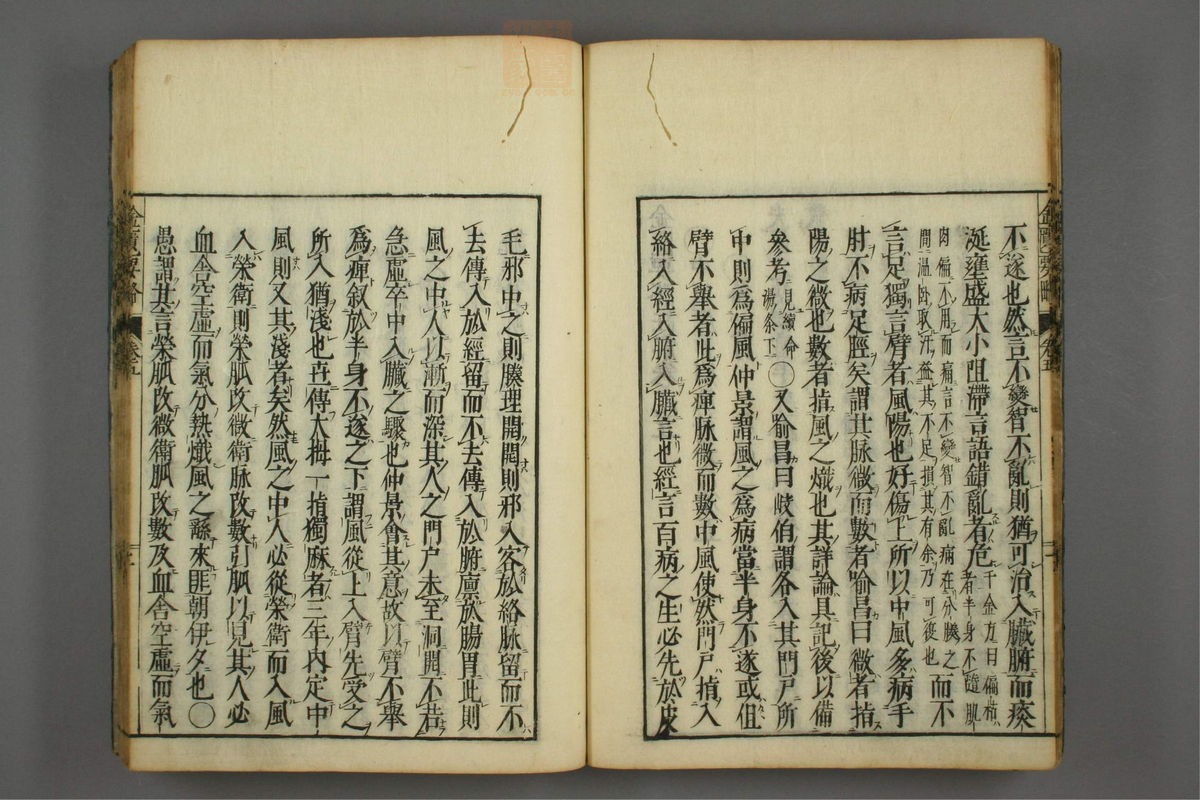 不遂也然言不變智不亂則猶可治入臟腑而痰
涎壅盛大小阻滯言語錯亂者危千金方曰偏枯者半身不隨肌
肉偏不用而痛言不變智不亂病在分腠之間溫臥取汗益其不足損其有余乃可復也而不
言足獨言臂者風陽也好傷上所以中風多病手
肘不病足脛矣謂其脉微而數者喻昌曰微者指
陽之微也數者指風之熾也其詳論具記後以備
參考見續命湯条下〇又喻昌曰岐伯謂各入其門戶所
中則爲偏風仲景謂風之爲病當半身不遂或但
臂不舉者此爲痺脉微而數中風使然門戶指入
絡入經入腑入臟言也經言百病之生必先於皮
毛邪中之則腠理開開則邪入客於絡脉留而不
去傳入於經留而不去傳入於腑廪於腸胃此則
風之中人以漸而深其人之門戶未至洞開不若
急虛卒中入臟之驟也仲景會其意故以臂不舉
爲痺叙於半身不遂之下謂風從上入臂先受之
所入猶淺也世傳大拇一指獨麻者三年內定中
風則又其淺者矣然風之中人必從榮衛而入風
入榮衛則榮脉改微衛脉改數引脉以見其人必
血舍空虛而氣分熱熾風之繇來匪朝伊夕也〇
愚謂其言榮脉改微衛脉改數及血舍空虛而氣
金匱要略
卷五